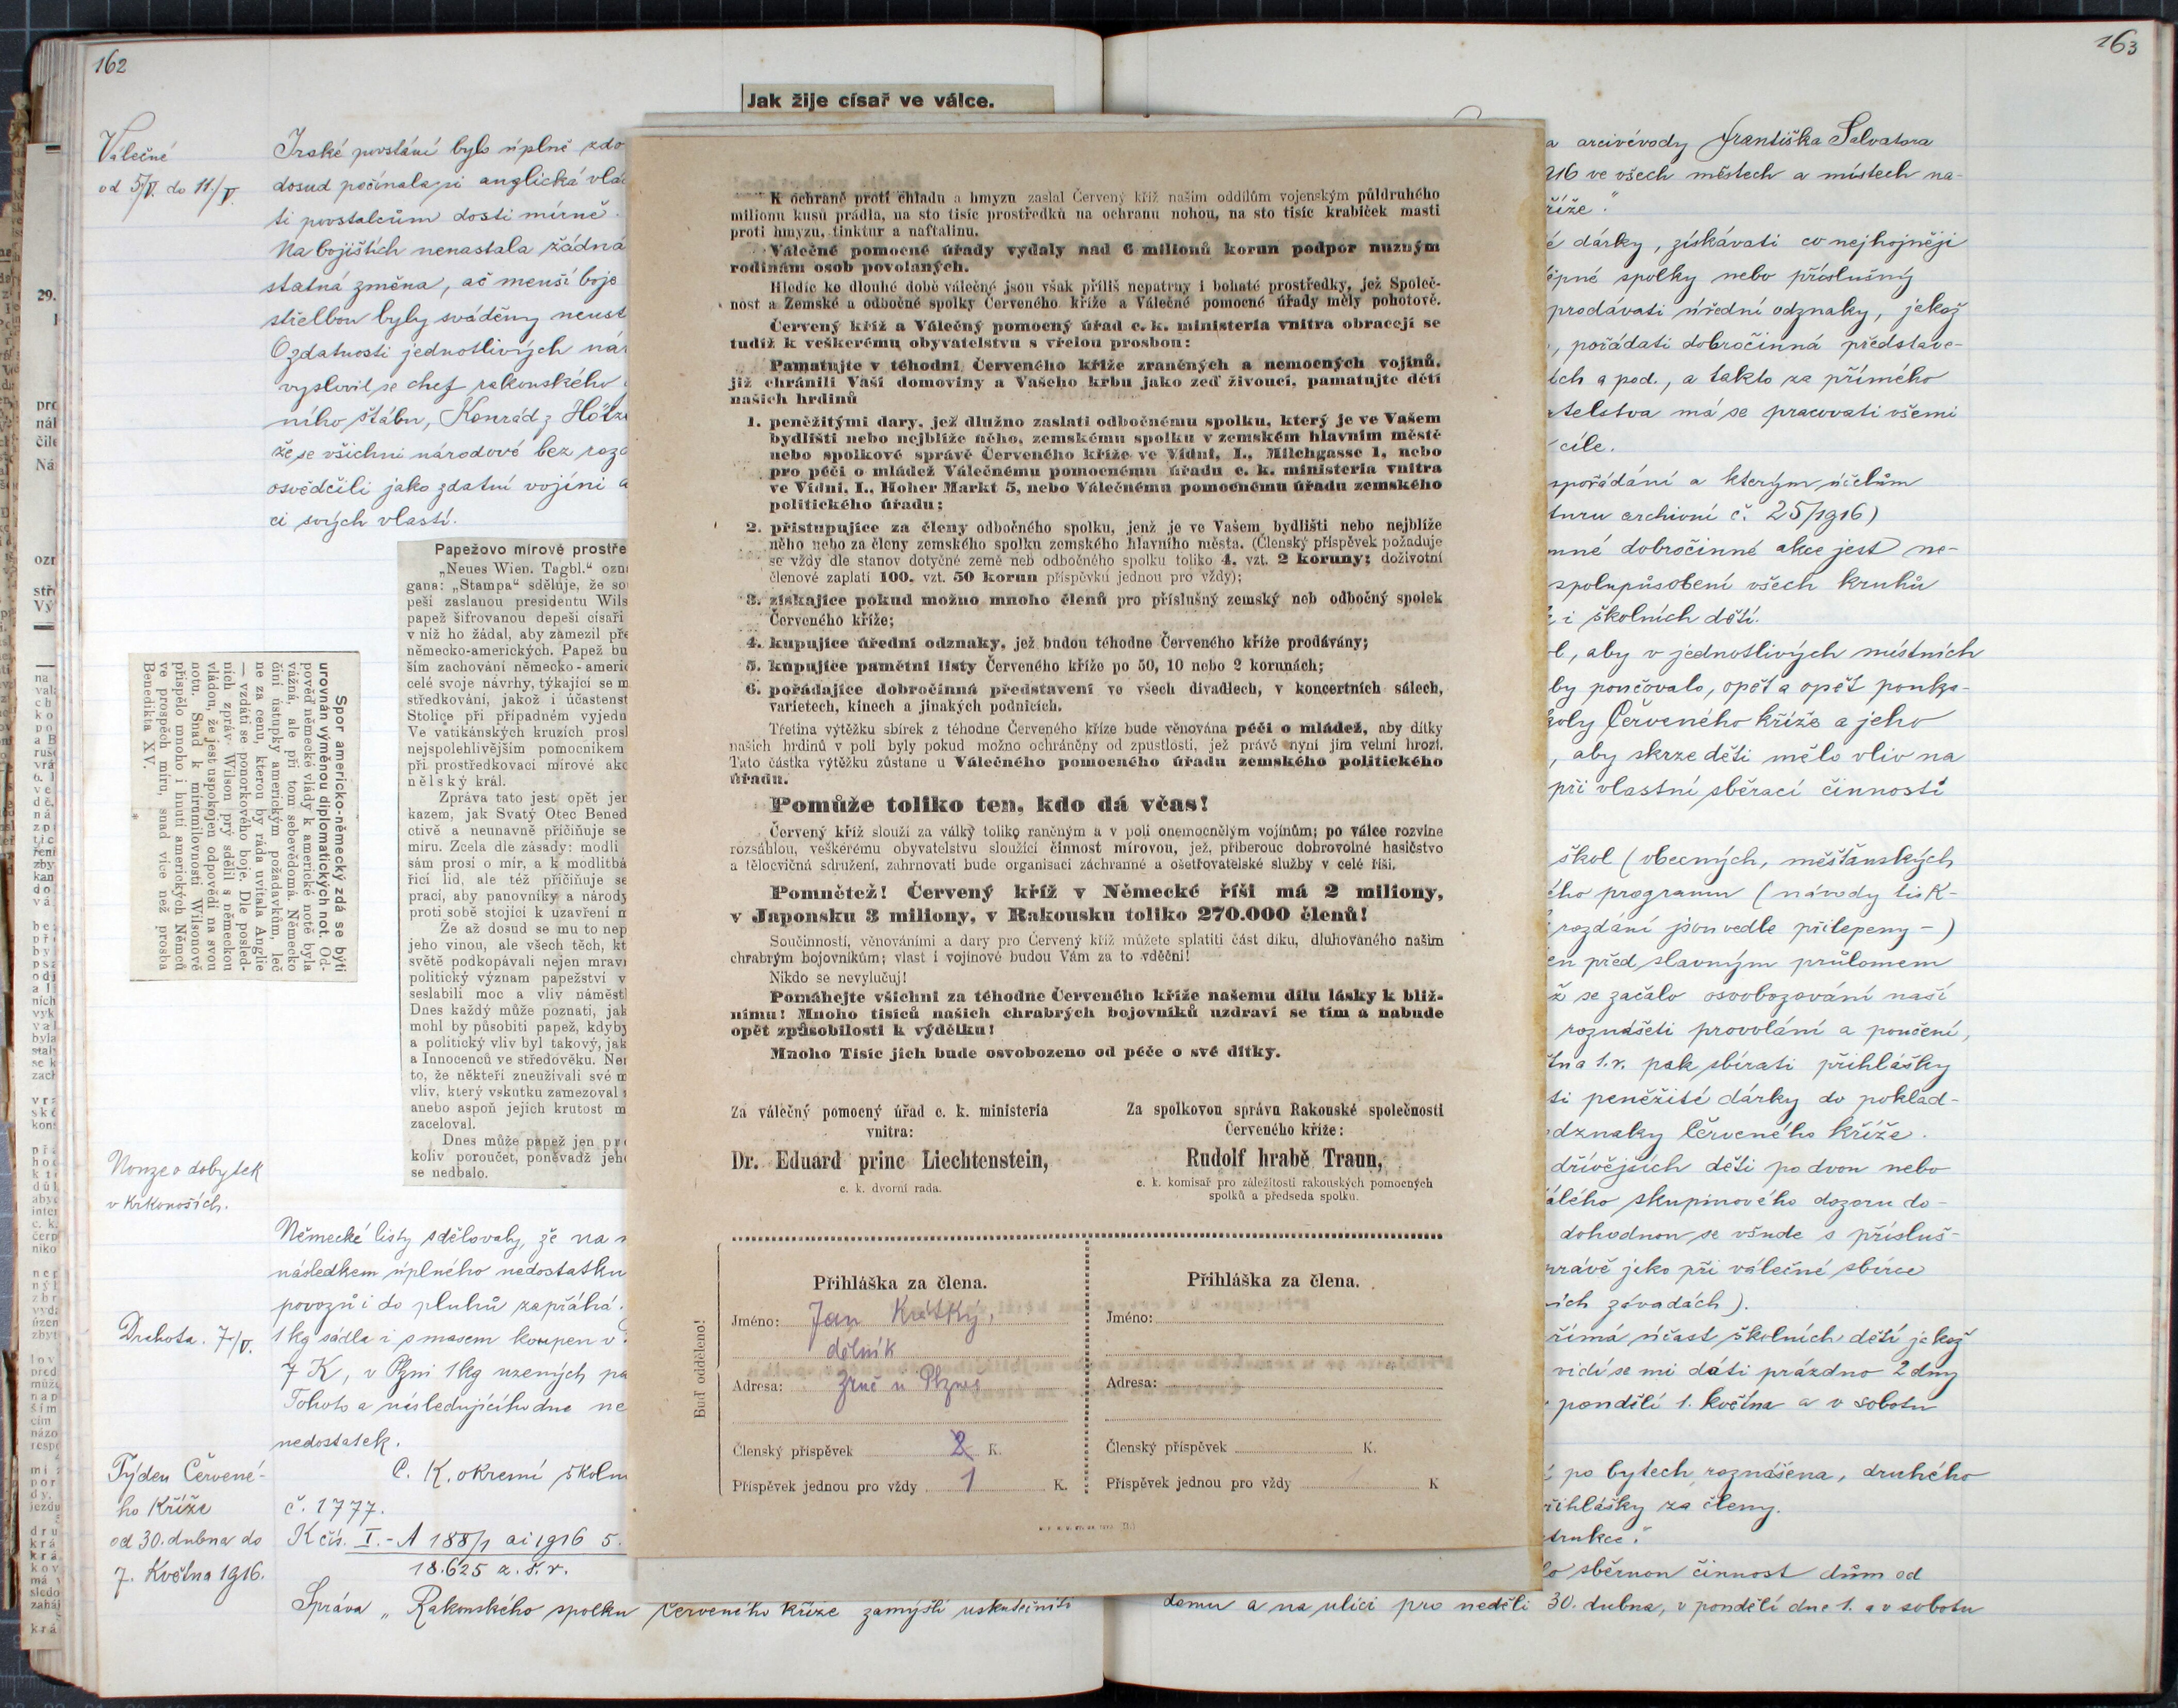 162
Jak žije císař ve válce.
Válečné
od 5/V. do 11./V.
Irské povstání bylo úplně zdo
dosud počínala si anglická vlád
ti povstalcům dosti mírně.
Na bojištích nenastala žádná
statná změna, ač menší boje
střelbou byly sváděny neust
O zdatnosti jednotlivých nár
vyslovil se chef rakouského
ního štábu, Konrád z Hötz
že se všichni národové bez rozd
osvědčili jako zdatní vojíni a
ci svých vlastí.
Papežovo mírové prostře
„Neues Wien. Tagbl.“ ozn
gana: „Stampa“ sděluje, že so
peší zaslanou presidentu Wils
papež šifrovanou depeši císaři
v níž ho žádal, aby zamezil pře
německo-amerických. Papež bu
ším zachování německo-americ
celé svoje návrhy, týkající se m
středkování, jakož i účastenst
Stolice při případném vyjedn
Ve vatikánských kruzích prosl
nejspolehlivějším pomocníkem
při prostředkovací mírové akc
nělský král.
Zpráva tato jest opět jen
kazem, jak Svatý Otec Bened
ctivě a neunavně přičiňuje se
míru. Zcela dle zásady: modli
sám prosí o mír, a k modlitbá
řící lid, ale též přičiňuje se
praci, aby panovníky a národy
proti sobě stojící k uzavření m
Že až dosud se mu to nep
jeho vinou, ale všech těch, kt
světě podkopávali nejen mravn
politický význam papežství v
seslabili moc a vliv náměst
Dnes každý může poznati, jak
mohl by působiti papež, kdyby
a politický vliv byl takový, jak
a Innocenců ve středověku. Nen
to, že někteří zneužívali své m
vliv, který vskutku zamezoval
anebo aspoň jejich krutost m
zaceloval.
Dnes může papež jen pro
koliv poroučet, poněvadž jeho
se nedbalo.
Spor americko-německý zdá se býti
urovnán výměnou diplomatických not. Od-
pověď německé vlády k americké notě byla
vážná, ale při tom sebevědomá. Německo
činí ústupky americkým požadavkům, leč
ne za cenu, kterou by ráda uvítala Anglie
— vzdáti se ponorkového boje. Dle posled-
ních zpráv Wilson prý sdělil s německou
vládou, že jest uspokojen odpovědí na svou
notu. Snad k mírumilovnosti Wilsonově
přispělo mnoho i hnutí amerických Němců
ve prospěch míru, snad více než prosba
Benedikta XV.
*
Nouze o dobytek
v Krkonoších.
Německé listy sdělovaly, že na
následkem úplného nedostatku
povozů i do pluhů zapřáhá.
Drahota. 7/V.
1 kg sádla i s masem koupen v
7 K, v Plzni 1 kg uzených
Tohoto a následujícího dne ne
nedostatek.
Týden Červené-
ho Kříže
od 30. dubna do
7. Května 1916.
C. K. okresní školn
č. 1777.
K čís. I.-A 188/1 ai 1916 5.
18.625 z. š. r.
Správa „Rakouského spolku červeného kříže zamýšlí uskutečniti
K ochraně proti chladu a hmyzu zaslal Červený kříž našim oddílům vojenským půldruhého
milionu kusů prádla, na sto tisíc prostředků na ochranu nohou, na sto tisíc krabiček masti
proti hmyzu, tinktur a naftalinu.
Válečné pomocné úřady vydaly nad 6 milionů korun podpor nuzným
rodinám osob povolaných.
Hledíc ke dlouhé době válečné jsou však příliš nepatrny i bohaté prostředky, jež Společ-
nost a Zemské a odbočné spolky Červeného kříže a Válečné pomocné úřady měly pohotově.
Červený kříž a Válečný pomocný úřad c. k. ministeria vnitra obracejí se
tudíž k veškerému obyvatelstvu s vřelou prosbou:
Pamatujte v téhodni Červeného kříže zraněných a nemocných vojínů,
již chránili Vaší domoviny a Vašeho krbu jako zeď živoucí, pamatujte dětí
našich hrdinů
1. peněžitými dary, jež dlužno zaslati odbočnému spolku, který je ve Vašem
bydlišti nebo nejblíže něho, zemskému spolku v zemském hlavním městě
nebo spolkové správě Červeného kříže ve Vídni, I., Milchgasse 1, nebo
pro péči o mládež Válečnému pomocnému úřadu c. k. ministeria vnitra
ve Vídni, I., Hoher Markt 5, nebo Válečnému pomocnému úřadu zemského
politického úřadu;
2. přistupujíce za členy odbočného spolku, jenž je ve Vašem bydlišti nebo nejblíže
něho nebo za členy zemského spolku zemského hlavního města. (Členský příspěvek požaduje
se vždy dle stanov dotyčné země neb odbočného spolku toliko 4, vzt. 2 koruny; doživotní
členové zaplatí 100, vzt. 50 korun příspěvku jednou pro vždy);
3. získajíce pokud možno mnoho členů pro příslušný zemský neb odbočný spolek
Červeného kříže;
4. kupujíce úřední odznaky, jež budou téhodne Červeného kříže prodávány;
5. kupujíce pamětní listy Červeného kříže po 50, 10 nebo 2 korunách;
6. pořádajíce dobročinná představení ve všech divadlech, v koncertních sálech,
varietech, kinech a jinakých podnicích.
Třetina výtěžku sbírek z téhodne Červeného kříže bude věnována péči o mládež, aby dítky
našich hrdinů v poli byly pokud možno ochráněny od zpustlosti, jež právě nyní jim velmi hrozí.
Tato částka výtěžku zůstane u Válečného pomocného úřadu zemského politického
úřadu.
Pomůže toliko ten, kdo dá včas!
Červený kříž slouží za války toliko raněným a v poli onemocnělým vojínům; po válce rozvine
rozsáhlou, veškerému obyvatelstvu sloužící činnost mírovou, jež, přiberouc dobrovolné hasičstvo
a tělocvičná sdružení, zahrnovati bude organisaci záchranné a ošetřovatelské služby v celé říši.
Pomnětež! Červený kříž v Německé říši má 2 miliony,
v Japonsku 3 miliony, v Rakousku toliko 270.000 členů!
Součinností, věnováními a dary pro Červený kříž můžete splatiti část díku, dluhovaného našim
chrabrým bojovníkům; vlast i vojínové budou Vám za to vděční!
Nikdo se nevylučuj!
Pomáhejte všichni za téhodne Červeného kříže našemu dílu lásky k bliž-
nímu! Mnoho tisíců našich chrabrých bojovníků uzdraví se tím a nabude
opět způsobilosti k výdělku!
Mnoho Tisíc jich bude osvobozeno od péče o své dítky.
Za válečný pomocný úřad c. k. ministeria
vnitra:
Dr. Eduard princ Liechtenstein,
c. k. dvorní rada.
Za spolkovou správu Rakouské společnosti
Červeného kříže:
Rudolf hrabě Traun,
c. k. komisař pro záležitosti rakouských pomocných
spolků a předseda spolku.
Buď odděleno!
Přihláška za člena.
Jméno: Jan Krátký,
dělník
Adresa: Zruč u Plzně
Členský příspěvek 2 K.
Příspěvek jednou pro vždy 1 K.
Přihláška za člena.
Jméno:
Adresa:
Členský příspěvek K.
Příspěvek jednou pro vždy K
163
a arcivévody Františka Salvatora
916 ve všech městech a místech na-
říže."
é dárky, získávati co nejhojněji
spolky nebo příslušný
prodávati úřední odznaky, jakož
, pořádati dobročinná představe-
ích a pod., a takto za přímého
telstva má se pracovati všemi
cíle.
spořádání a kterým účelům
turu archivní č. 25/1916)
mné dobročinné akce jest ne-
spolupůsobení všech kruhů
i školních dětí.
l, aby v jednotlivých místních
by poučovalo, opět a opět pouka-
koly Červeného kříže a jeho
, aby skrze děti mělo vliv na
při vlastní sběrací činnosti
škol (obecných, měšťanských
ého programu (návody tisk-
rozdání jsou vedle přilepeny -)
en před slavným průlomem
ž se začalo osvobozování naší
roznášeti provolání a poučení,
tna t.r. pak sbírati přihlášky
ti peněžité dárky do poklad-
dznaky červeného kříže.
dřívějších děti po dvou nebo
álého skupinového dozoru do-
dohodnou se všude s přísluš-
právě jako při válečné sbírce
ích závadách).
římá účast školních dětí jakož
vidí se mi dáti prázdno 2 dny
pondělí 1. května a v sobotu
po bytech roznášena, druhého
řihlášky za členy.
strukce."
lo sběrnou činnost dům od
domu a na ulici pro neděli 30. dubna, v pondělí dne 1. a v sobotu